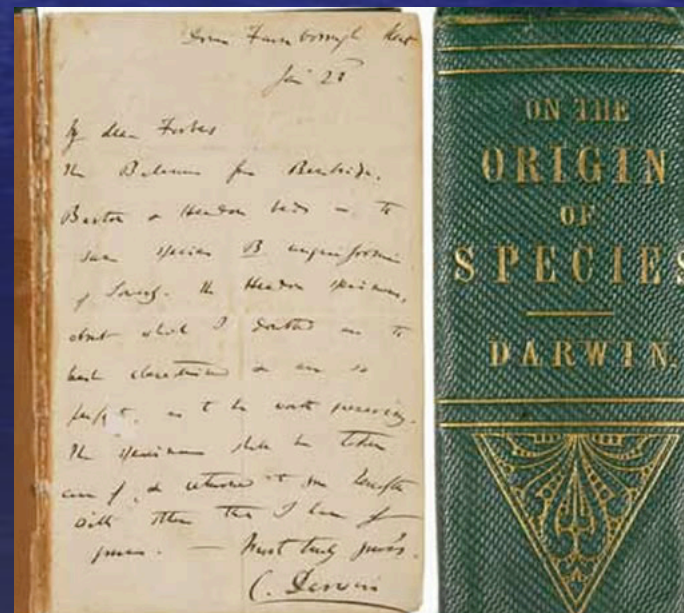 Down Farnborough Kent
Jan 28
My dear Forbes
The Balanus from Bembridge,
Barton & Headon beds is the
same species B. unguiformis
of Sowerby. The Headon specimens,
about which I doubted are the
best characterised & are so
perfect, as to be worth preserving.
The specimens shall be taken
care of, & returned to you
with others that I have of
yours. — Most truly yours
C. Darwin
ON THE
ORIGIN
OF
SPECIES
DARWIN.